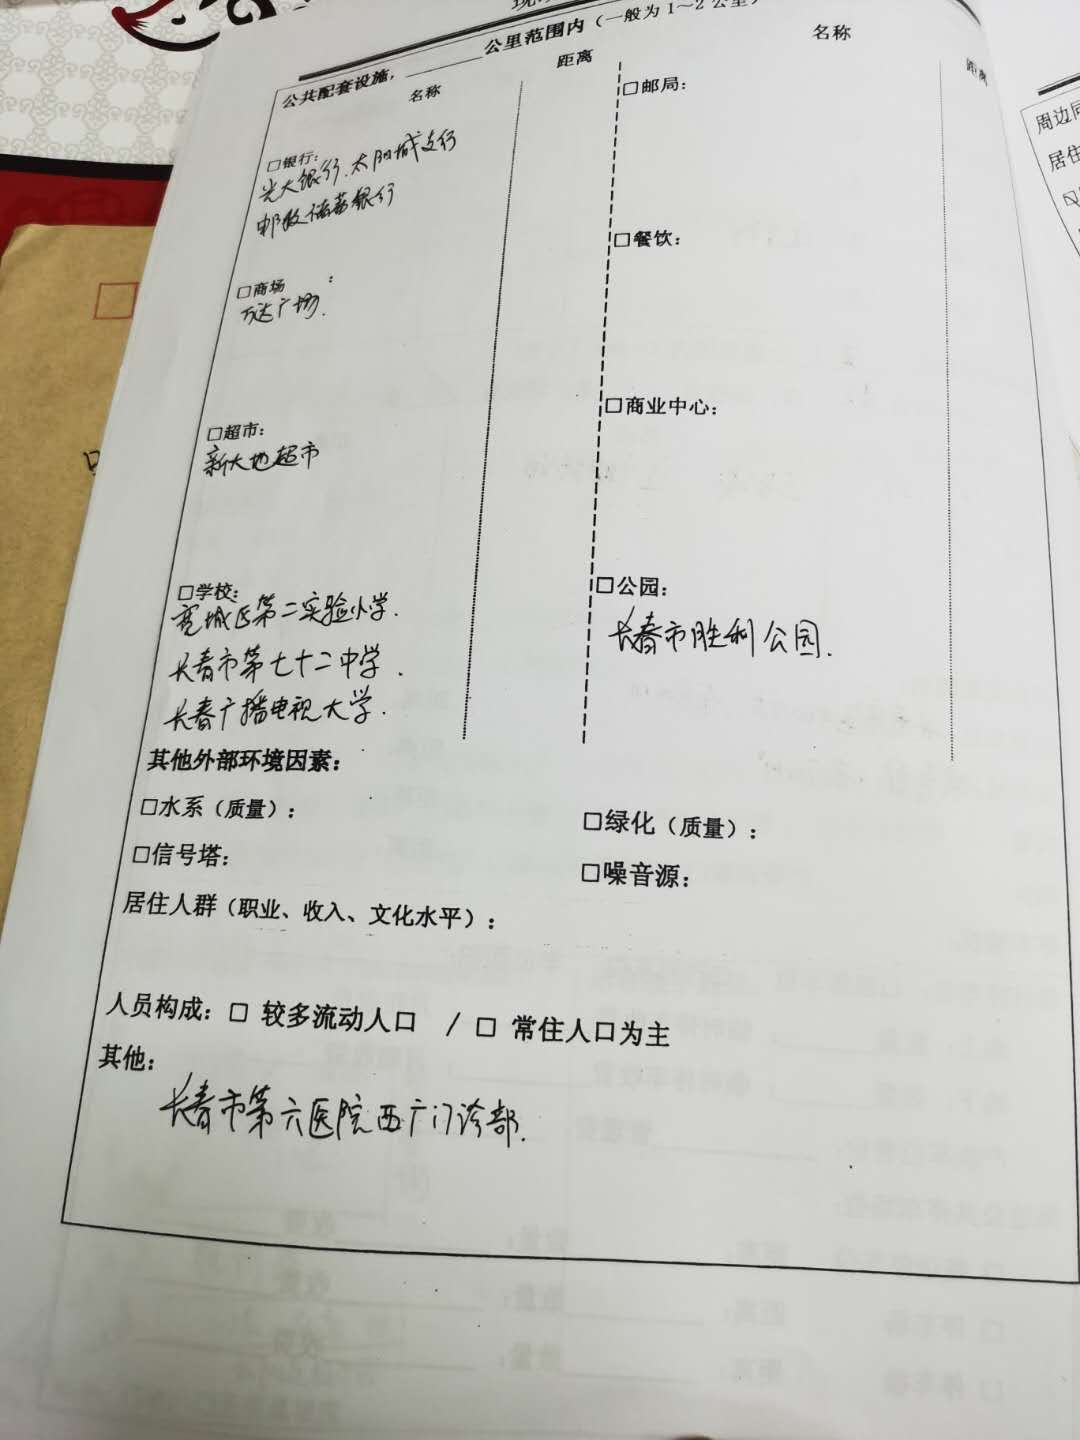 公共配套设施，______公里范围内（一般为1～2公里）
名称 距离 名称 距离
□银行：
光大银行.太阳城支行
邮政储蓄银行
□商场：
万达广场.
□超市：
新大地超市
□学校：
宽城区第二实验小学.
长春市第七十二中学.
长春广播电视大学.
□邮局：
□餐饮：
□商业中心：
□公园：
长春市胜利公园.
其他外部环境因素：
□水系（质量）： □绿化（质量）：
□信号塔： □噪音源：
居住人群（职业、收入、文化水平）：
人员构成：□ 较多流动人口 / □ 常住人口为主
其他：
长春市第六医院西广门诊部.
周边同
居住